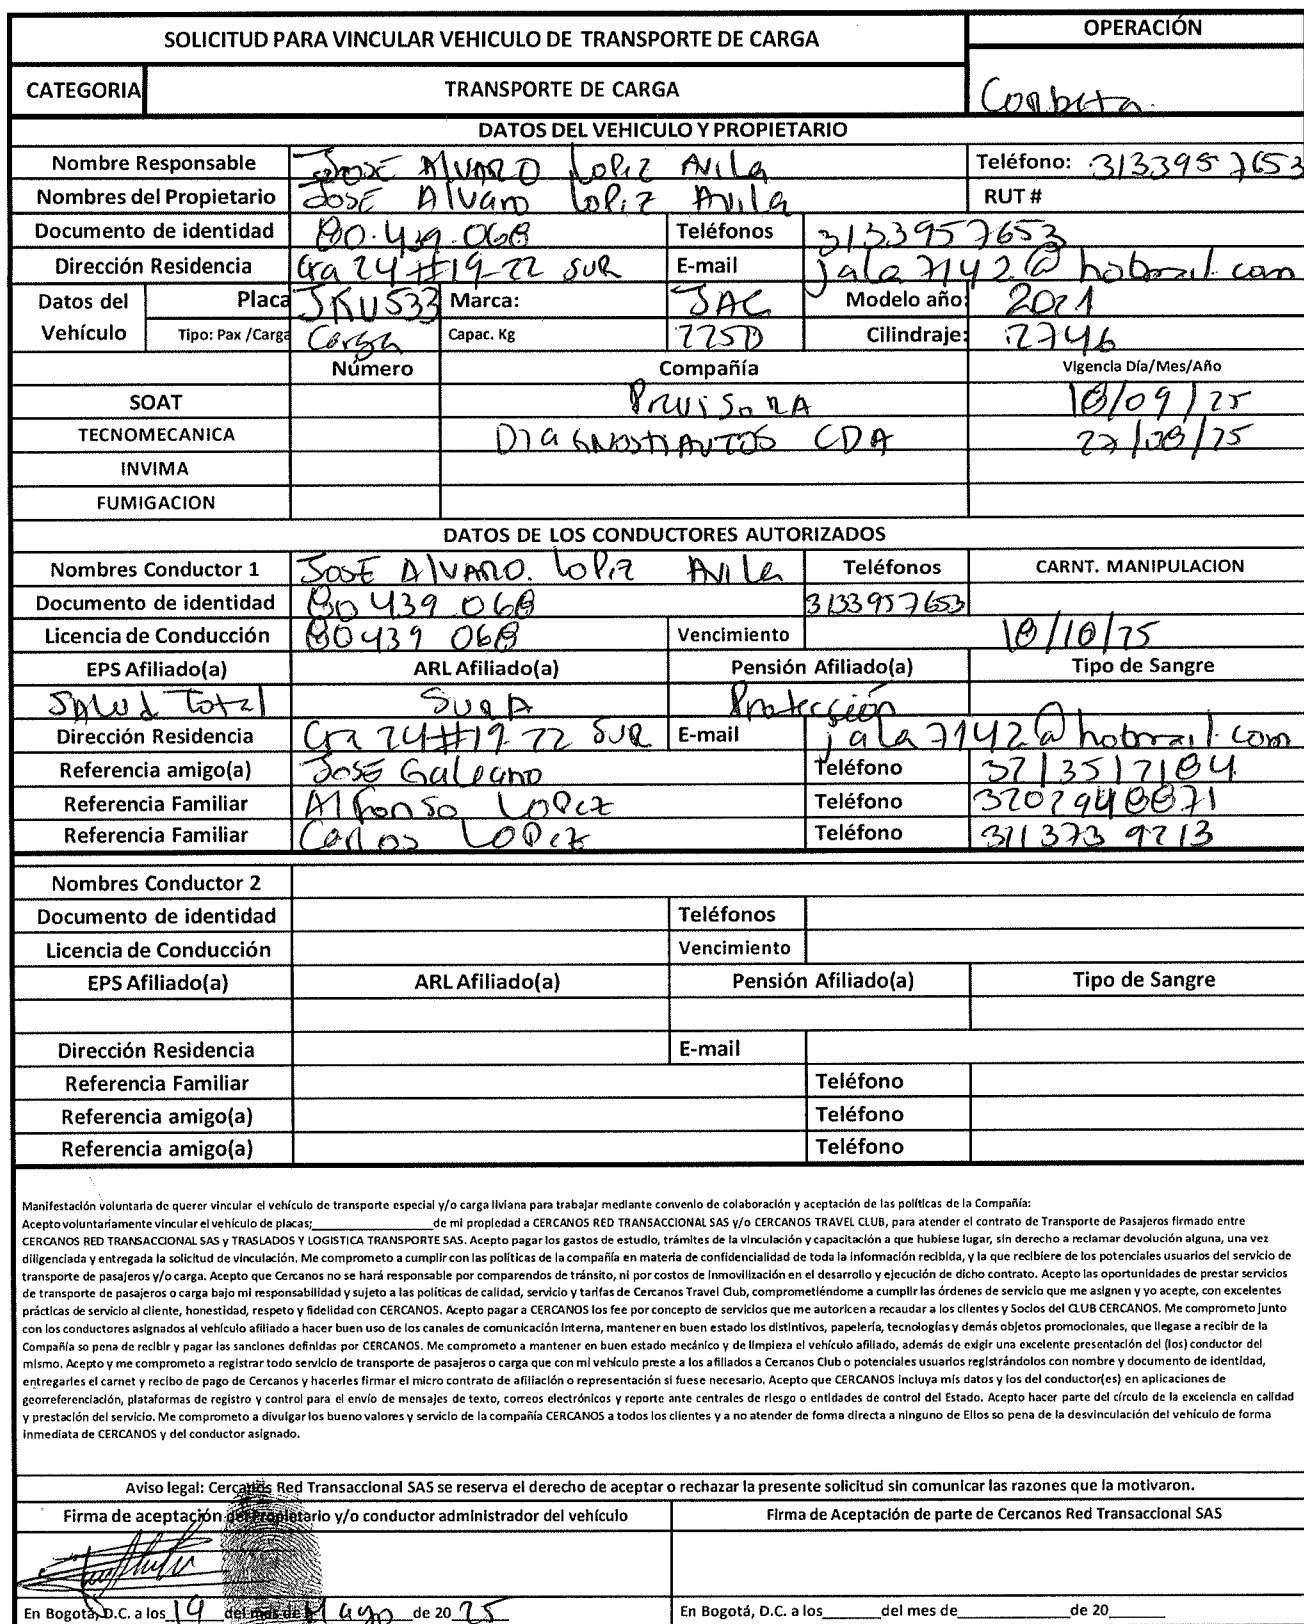 SOLICITUD PARA VINCULAR VEHICULO DE TRANSPORTE DE CARGA
OPERACIÓN
CATEGORIA TRANSPORTE DE CARGA
Corbeta
DATOS DEL VEHICULO Y PROPIETARIO
Nombre Responsable JOSE AlVARO LoPez AviLa Teléfono: 3133957653
Nombres del Propietario JosE Alvaro LoPez Avila RUT #
Documento de identidad 80.439.068 Teléfonos 3133957653
Dirección Residencia Cra 24 #19-22 SUR E-mail jala7142@hotmail.com
Datos del Vehículo Placa JKU533 Marca: JAC Modelo año: 2021
Tipo: Pax /Carga Carga Capac. Kg 2250 Cilindraje: 2746
Número Compañía Vigencia Día/Mes/Año
SOAT PreviSoRA 18/09/25
TECNOMECANICA DIaGNostiAUTOS CDA 27/08/25
INVIMA
FUMIGACION
DATOS DE LOS CONDUCTORES AUTORIZADOS
Nombres Conductor 1 JosE AlVARO. LoPez AviLa Teléfonos CARNT. MANIPULACION
Documento de identidad 80439.068 3133957653
Licencia de Conducción 80439 068 Vencimiento 18/10/25
EPS Afiliado(a) ARL Afiliado(a) Pensión Afiliado(a) Tipo de Sangre
SAlud Total SuRA Protección
Dirección Residencia Cra 24#19-22 SUR E-mail jala7142@hotmail.com
Referencia amigo(a) JosE Galeano Teléfono 3213517184
Referencia Familiar Alfonso LOPez Teléfono 3202948871
Referencia Familiar Carlos LOPez Teléfono 311373 9213
Nombres Conductor 2
Documento de identidad Teléfonos
Licencia de Conducción Vencimiento
EPS Afiliado(a) ARL Afiliado(a) Pensión Afiliado(a) Tipo de Sangre
Dirección Residencia E-mail
Referencia Familiar Teléfono
Referencia amigo(a) Teléfono
Referencia amigo(a) Teléfono
Manifestación voluntaria de querer vincular el vehículo de transporte especial y/o carga liviana para trabajar mediante convenio de colaboración y aceptación de las políticas de la Compañía:
Acepto voluntariamente vincular el vehículo de placas;____________________de mi propiedad a CERCANOS RED TRANSACCIONAL SAS y/o CERCANOS TRAVEL CLUB, para atender el contrato de Transporte de Pasajeros firmado entre
CERCANOS RED TRANSACCIONAL SAS y TRASLADOS Y LOGISTICA TRANSPORTE SAS. Acepto pagar los gastos de estudio, trámites de la vinculación y capacitación a que hubiese lugar, sin derecho a reclamar devolución alguna, una vez
diligenciada y entregada la solicitud de vinculación. Me comprometo a cumplir con las políticas de la compañía en materia de confidencialidad de toda la información recibida, y la que recibiere de los potenciales usuarios del servicio de
transporte de pasajeros y/o carga. Acepto que Cercanos no se hará responsable por comparendos de tránsito, ni por costos de inmovilización en el desarrollo y ejecución de dicho contrato. Acepto las oportunidades de prestar servicios
de transporte de pasajeros o carga bajo mi responsabilidad y sujeto a las políticas de calidad, servicio y tarifas de Cercanos Travel Club, comprometiéndome a cumplir las órdenes de servicio que me asignen y yo acepte, con excelentes
prácticas de servicio al cliente, honestidad, respeto y fidelidad con CERCANOS. Acepto pagar a CERCANOS los fee por concepto de servicios que me autoricen a recaudar a los clientes y Socios del CLUB CERCANOS. Me comprometo junto
con los conductores asignados al vehículo afiliado a hacer buen uso de los canales de comunicación interna, mantener en buen estado los distintivos, papelería, tecnologías y demás objetos promocionales, que llegase a recibir de la
Compañía so pena de recibir y pagar las sanciones definidas por CERCANOS. Me comprometo a mantener en buen estado mecánico y de limpieza el vehículo afiliado, además de exigir una excelente presentación del (los) conductor del
mismo. Acepto y me comprometo a registrar todo servicio de transporte de pasajeros o carga que con mi vehículo preste a los afiliados a Cercanos Club o potenciales usuarios registrándolos con nombre y documento de identidad,
entregarles el carnet y recibo de pago de Cercanos y hacerles firmar el micro contrato de afiliación o representación si fuese necesario. Acepto que CERCANOS incluya mis datos y los del conductor(es) en aplicaciones de
georreferenciación, plataformas de registro y control para el envío de mensajes de texto, correos electrónicos y reporte ante centrales de riesgo o entidades de control del Estado. Acepto hacer parte del círculo de la excelencia en calidad
y prestación del servicio. Me comprometo a divulgar los bueno valores y servicio de la compañía CERCANOS a todos los clientes y a no atender de forma directa a ninguno de Ellos so pena de la desvinculación del vehículo de forma
inmediata de CERCANOS y del conductor asignado.
Aviso legal: Cercanos Red Transaccional SAS se reserva el derecho de aceptar o rechazar la presente solicitud sin comunicar las razones que la motivaron.
Firma de aceptación del Propietario y/o conductor administrador del vehículo Firma de Aceptación de parte de Cercanos Red Transaccional SAS
En Bogotá, D.C. a los 19 del mes de Mayo de 20 25 En Bogotá, D.C. a los_______del mes de____________de 20______